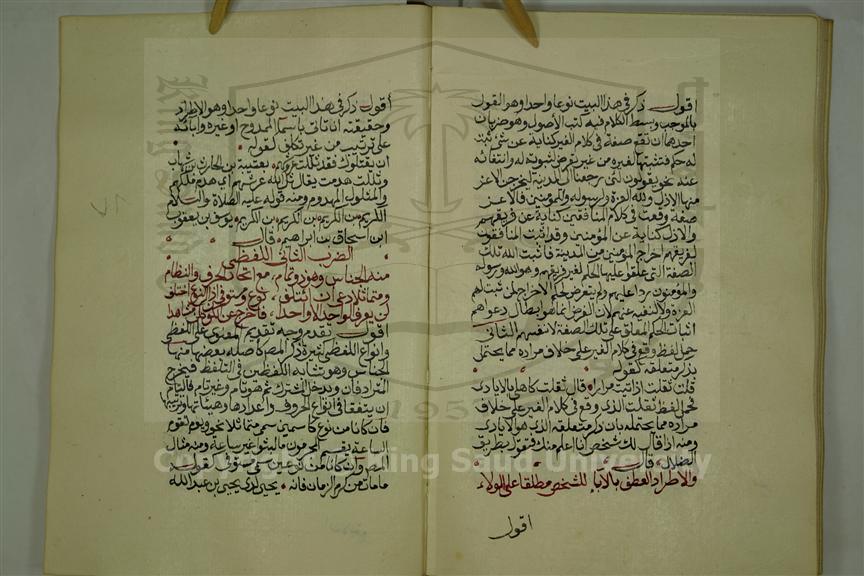 أقول ذكر في هذا البيت نوعا واحدا وهو القول
بالموجب وبسط الكلام فيه كتب الأصول وهو ضربان
أحدهما أن تقع صفة في كلام الغير كناية عن شئ ثبت
له حكم فتثبتها لغيره من غير تعرض لثبوته له وانتفائه
عنه نحو يقولون لئن رجعنا الى المدينة ليخرجن الاعز
منها الاذل ولله العزة ولرسوله وللمؤمنين فالاعز
صفة وقعت في كلام المنافقين كناية عن فريقهم
والاذل كناية عن المؤمنين وقد اثبت المنافقون
لفريقهم اخراج المؤمنين من المدينة فاثبت الله تلك
الصفة التي علق عليها الحكم لغير فريقهم وهو الله ورسوله
والمؤمنون ردا عليهم ولم يتعرض لحكم الاخراج لمن ثبت لهم
العزة ولا لنفيه عنهم
اثبات الحكم المعلق على تلك الصفة لانفسهم الثاني
حمل لفظ وقع في كلام الغير على خلاف مراده مما يحتمله
بذكر متعلقه كقوله
قلت ثقلت اذ اتيت مرارا قال ثقلت كاهلي بالايادي
فحمل لفظ ثقلت الذي وقع في كلام الغير على خلاف
مراده مما يحتمله بان ذكر متعلقه الذي هو الايادي
ومنه اذا قال لك شخص أنا أعلم منك فتقول بطريق
الضلال قال
والاطراد العطف بالآباء للشخص مطلقا على الولاء
اقول
أقول ذكر في هذا البيت نوعا واحدا وهو الاطراد
وحقيقته أن تاتي باسم الممدوح أو غيره وآبائه
على ترتيب من غير تكلف كقوله
ان يقتلوك فقد ثللت عروشهم بعتيبة بن الحارث بن شهاب
وثللت هدمت يقال ثل الله عرشهم أي هدم ملكهم
والمثلول المهدوم ومنه قوله عليه الصلاة والسلام
الكريم بن الكريم بن الكريم بن الكريم يوسف بن يعقوب
ابن اسحاق بن ابراهيم قال
الضرب الثاني اللفظي
منه الجناس وهو ذو تمام مع اتحاد الحرف والنظام
ومتماثلا دعي ان ائتلف نوع ومستوفى اذا النوع اختلف
لن يعرف الواحد الا واحدا فاخرج عن الكون تكن مشاهدا
أقول تقدم وجه تقديم المعنوي على اللفظي
وانواع اللفظي كثيرة ذكر المص كأصله بعضها منها
الجناس وهو تشابه اللفظين في التلفظ فيخرج
ويدخل المشترك ثم هو تام وغير تام فالتام
ان يتفقا في انواع الحروف واعدادها وهيئاتها وترتيبها
فان كانا من نوع كاسمين سمى متماثلا نحو ويوم تقوم
الساعة يقسم المجرمون ما لبثوا غير ساعة ومنه مثال
المص وان كانا من نوعين سمى مستوفى كقوله
ما مات من كرم الزمان فانه يحيى لدى يحيى بن عبد الله